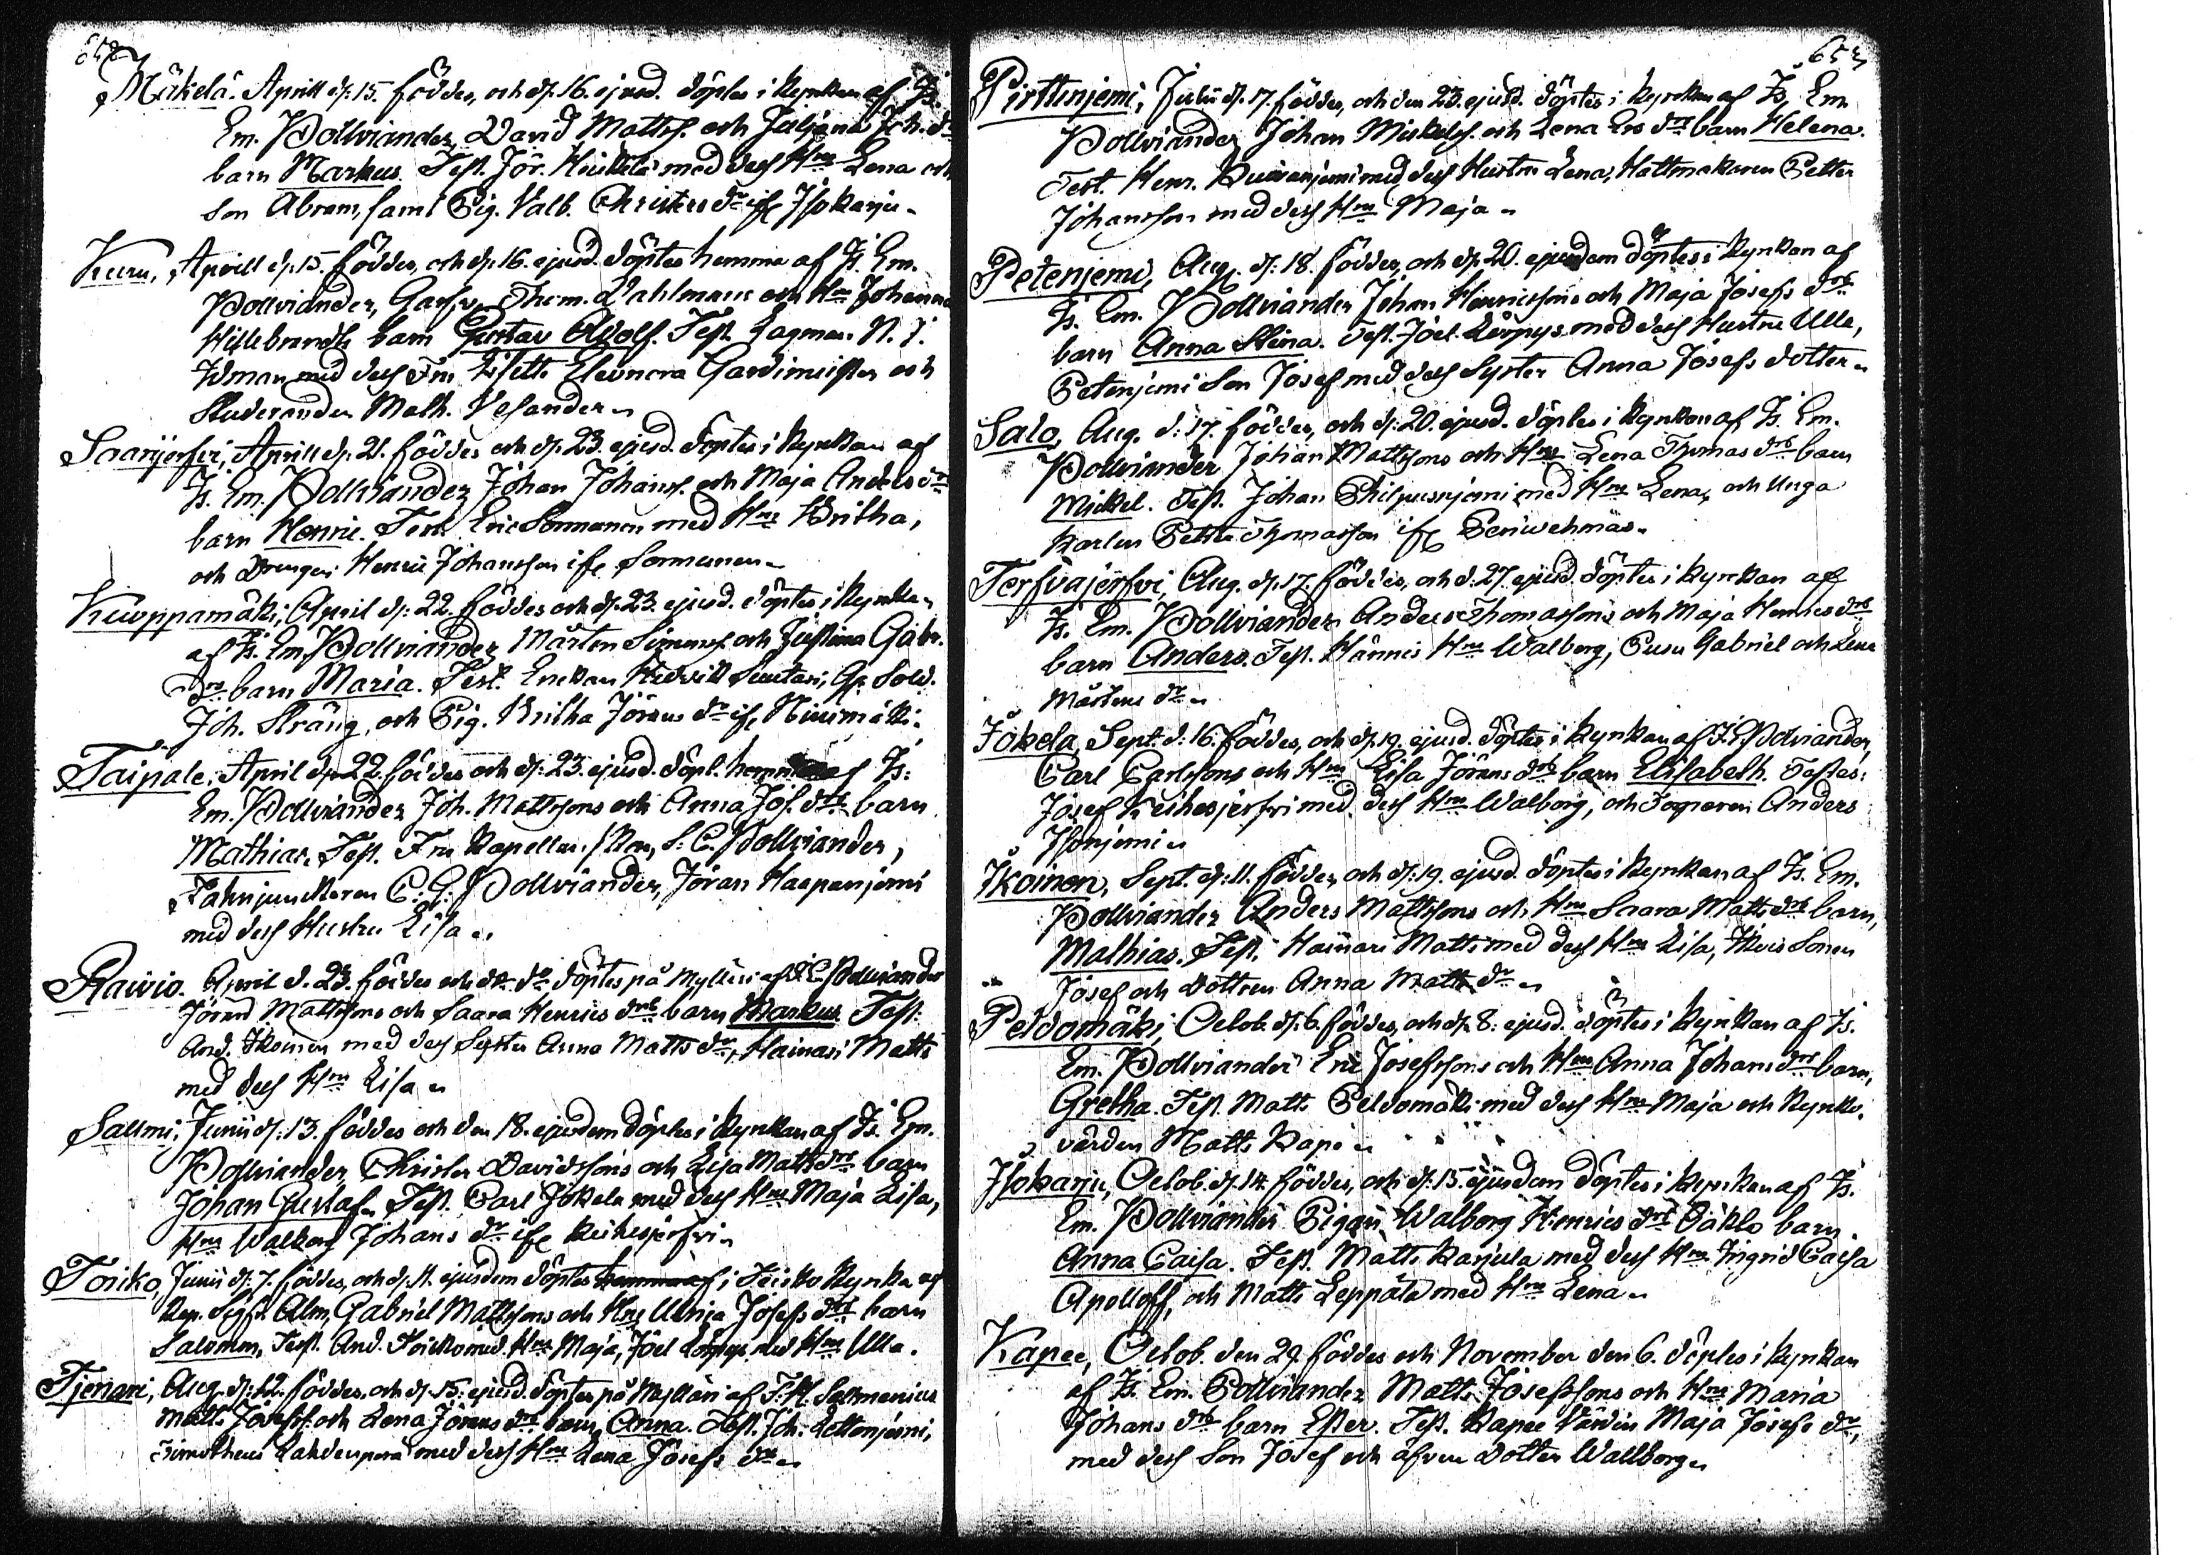 652
Mäkelä. Aprill d. 15. föddes, och d. 16. ejusd. döptes i Kyrckan af Is.
Em. Pollviander, David Matts. och Juljana Joh. dr
barn Markus. Test. Jör. Heickelä med dess Hru Lena och
Son Abram, samt Pig. Valb. Christers dr ifr. Isokarju.
Kuru, Aprill d. 15. föddes, och d. 16. ejusd. döptes hemma af Is. Em.
Pollviander, Garfv. Thom. Dahlmans och Hru Johanna
Hillebrandts barn Gustav Adolf. Test. Lagman N. I.
Idman med dess Fru Lisette Eleonora Gardimeister och
Studeranden Math. Vesander.
Saarijerfvi, Aprill d. 21. föddes och d. 23. ejusd. döptes i Kyrckan af
Is. Em. Pollviander, Johan Johans. och Maja Anders dr
barn Henric. Test. Eric Sormanen med Hru Britha,
och Drengen Henric Johansson ifr. Sormunen.
Kuoppamäki, April d. 22. föddes och d. 23. ejusd. döptes i Kyrcka
af Is. Em. Pollviander, Mårten Simons. och Justina Gabr.
drs barn Maria. Test. Enckan Hedvik Suutari, Gr. Sold.
Joh. Sträng, och Pig. Britha Jörans dr ifr. Niinimäki.
Taipale. April d. 22. föddes och d. 23. ejusd. döpt. hemma af Is.
Em. Pollviander Joh. Mattssons och Anna Jos. drs barn
Mathias. Test. Fru Kapellan-skan, S. C. Pollviander,
Fahnjunckaren C. G. Pollviander, Jöran Haapanjemi
med dess Hustru Lisa.
Raivio. April d. 23. föddes och do döptes på Mylläri af I. E. Pollviander
Jörans Mattssons och Saara Henrics drs barn Markus Test.
And. Ikoinen med dess Syster Anna Matts dr, Hainari Matts
med dess Hru Lisa.
Salmi, Junii d. 13. föddes och den 18. ejusdem döptes i Kyrckan af Is. Em.
Pollviander, Christer Davidssons och Lisa Matts drs barn
Johan Gustaf. Test. Carl Jokela med dess Hru Maja Lisa,
Hru Walborg Johans dr ifr. Keihesjerfvi.
Toriko, Junii d. 7. föddes, och d. 11. ejusdem döptes hemma af i Teisko Kyrcka af
Kap. Alm, Gabriel Mattssons och Hru Ulrica Josefs drs barn
Salomon, Test. And. med Hru Maja, Joel Lörpys med Hru Ulla.
Tjenari, Aug. d. 12. föddes, och d. 15. ejusd. döptes på Mylläri af Salmenius
Matts Josefss. och Lena Jörans drs barn Anna. Test. Joh. Lettenjemi,
Timotheus Lahdenperä med dess Hru Lena Josefs dr.
653
Pirttinjemi, Julii d. 17. föddes, och den 23. ejusd. döptes i Kyrckan af Is. Em.
Pollviander Johan Mickels. och Lena Ers drs barn Helena.
Test. Henr. Kuusenjemi med dess Hustru Lena, Hattmakaren Petter
Johansson med dess Hru Maja.
Petenjemi, Aug. d. 18. föddes, och d. 20. ejusdem döptes i Kyrckan af
Is. Em. Pollviander Johan Henricssons och Maja Josefs drs
barn Anna Stina. Test. Joel Lörpys med dess Hustru Ulla,
Petenjemi Son Josef med dess Syster Anna Josefs dotter.
Salo, Aug. d. 17. föddes, och d. 20. ejusd. döptes i Kyrckan af Is. Em.
Pollviander Johan Mattssons och Hru Lena Thomas drs barn
Mickel. Test. Johan Philpusnjemi med Hru Lena, och Unga
Karlen Petter Thomasson ifr.
Terfvajerfvi, Aug. d. 17. föddes, och d. 27. ejusd. döptes i Kyrckan af
Is. Em. Pollviander Anders Thomassons och Maja Henrics drs
barn Anders. Test. Hännis Hru Walborg, Pusu Gabriel och Lena
Mårtens dr.
Jokela, Sept. d. 16. föddes, och d. 19. ejusd. döptes i Kyrckan af I. E. Pollviander,
Carl Carlssons och Hru Lisa Jörans drs barn Elisabeth. Testes:
Josef Keihesjerfvi med dess Hru Walborg, och Anders
Isonjemi.
Ikoinen, Sept. d. 11. föddes, och d. 19. ejusd. döptes i Kyrckan af Is. Em.
Pollviander Anders Mattssons och Hru Saara Matts drs barn,
Mathias. Test. Hainari Matts med dess Hru Lisa, Sonen
Josef och Dottren Anna Matts dr.
Peldomäki, Octob. d. 6. föddes, och d. 8. ejusd. döptes i Kyrckan af Is.
Em. Pollviander Eric Josefssons och Hru Anna Johans drs barn,
Gretha. Test. Matts Peldomäki med dess Hru Maja och Kyrko-
värden Matts Kapé.
Isokarju, Octob. d. 14. föddes, och d. 15. ejusdem döptes i Kyrckan af Is.
Em. Pollviander Pigan Walborg Henrics drs Oäkto barn
Anna Caisa. Test. Matts Karjula med dess Hru Ingrid Caisa
Apolloff, och Matts Leppälä med Hru Lena.
Kapee, Octob. den 29. föddes och November den 6. döptes i Kyrckan
af Is. Em. Pollviander Matts Josefssons och Hru Maria
Johans drs barn Ester. Test. Kapee Värdin Maja Josefs dr,
med dess Son Josef och äfven Dotter Wallborg.